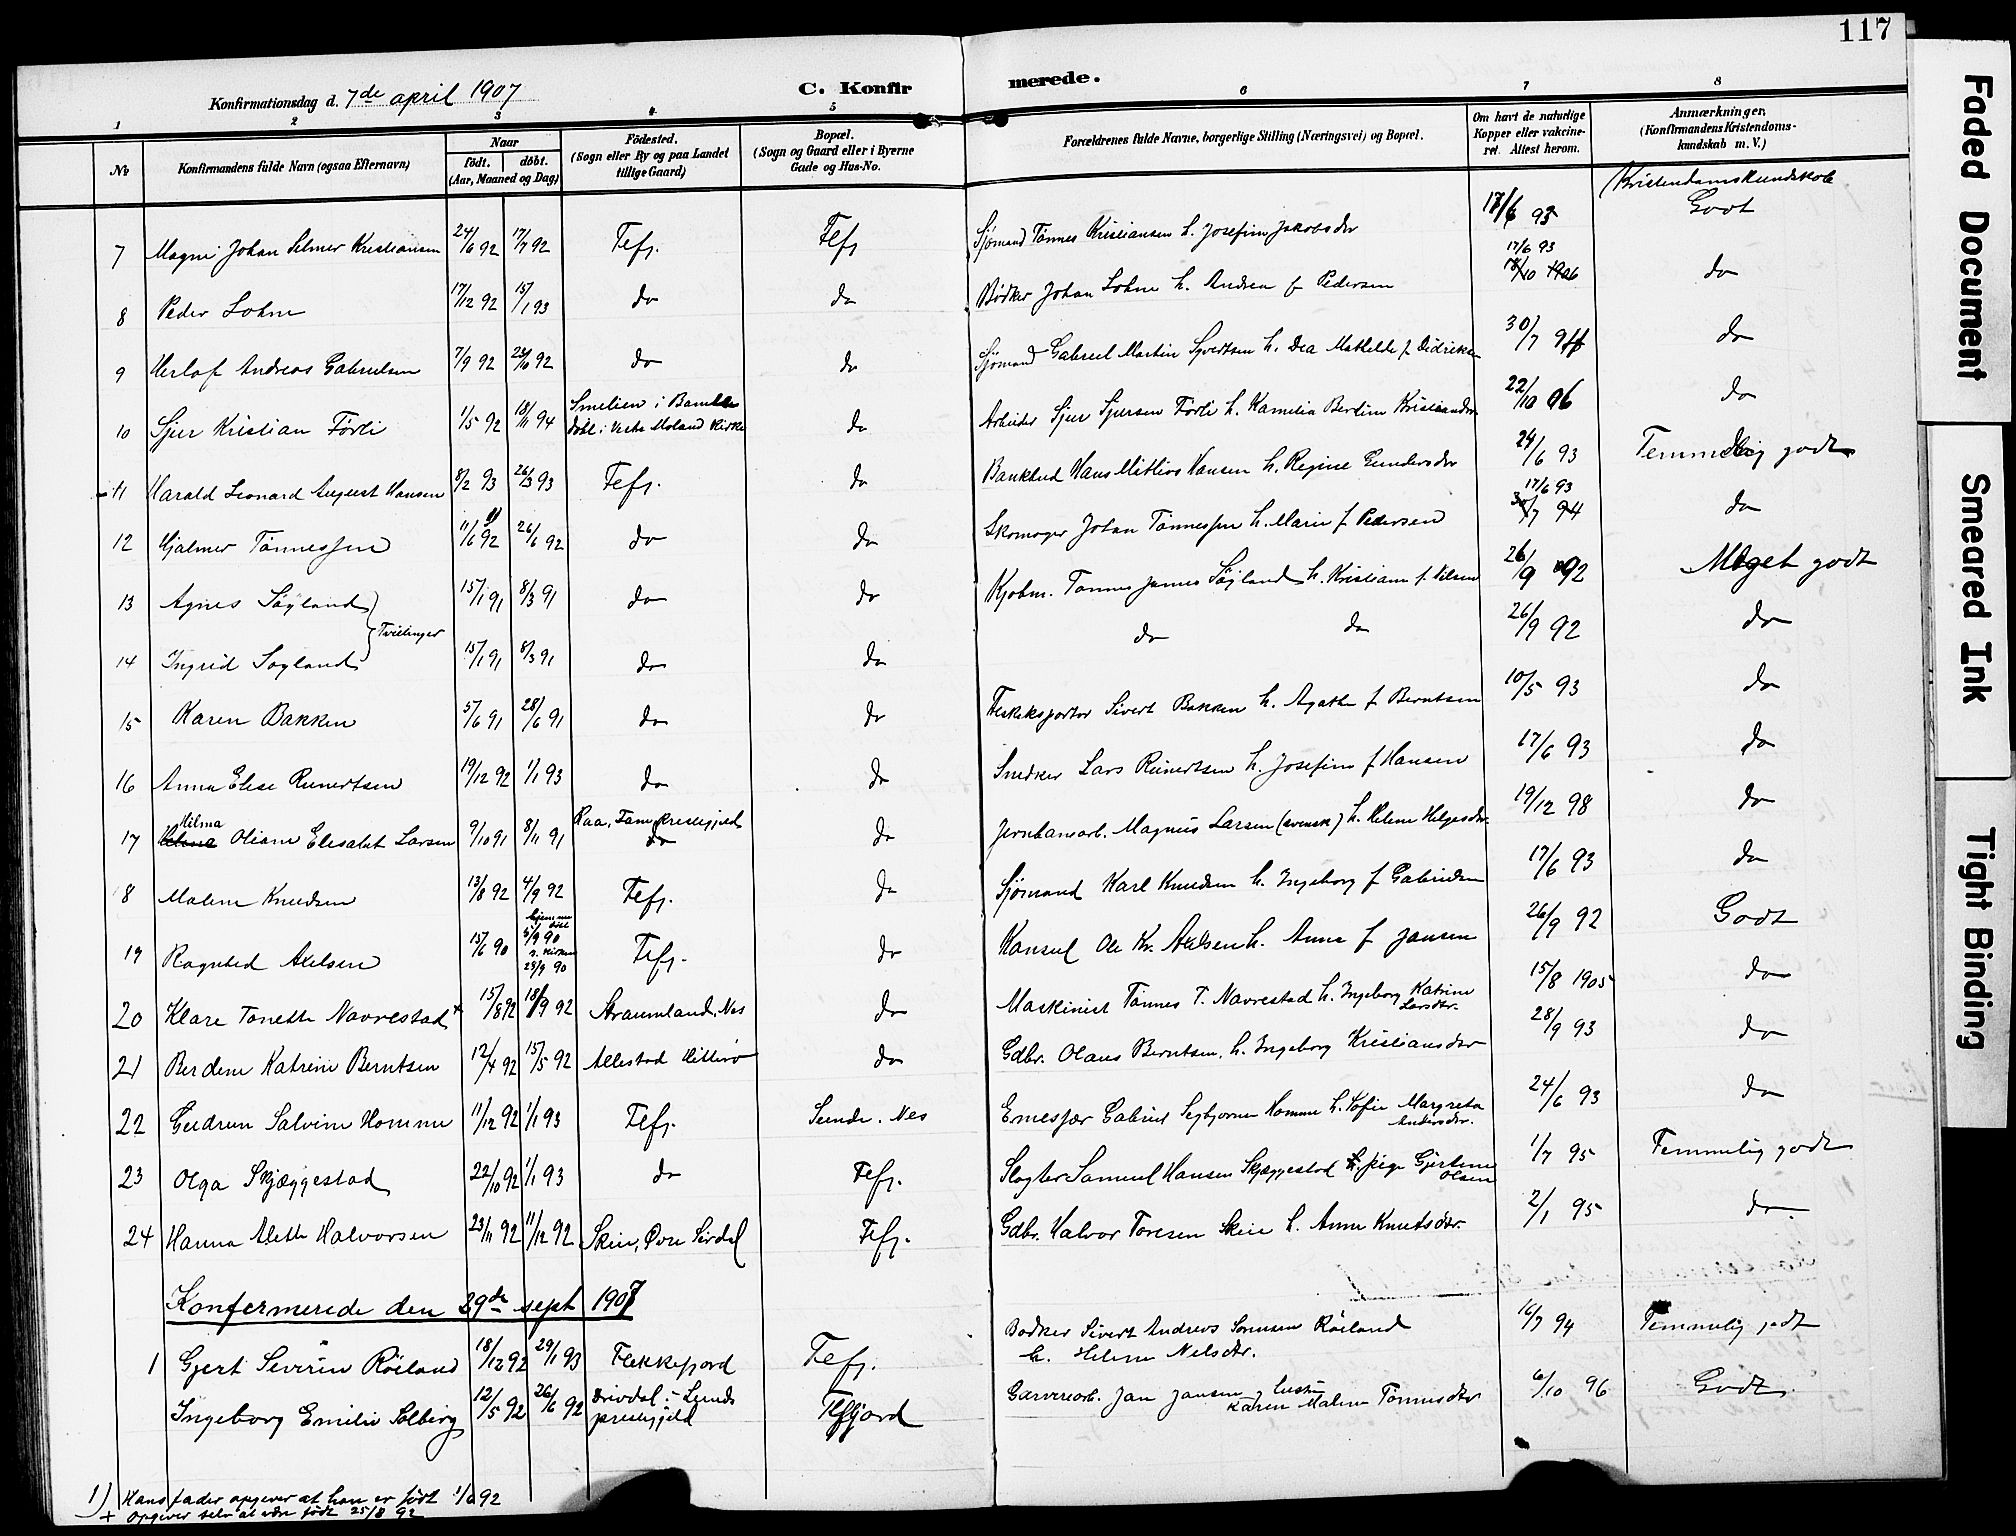 117
Konfirmationsdag d. 7de april 1907
C. Konfirmerede.
1 2 3 4 5 6 7 8
No
Konfirmandens fulde Navn (ogsaa Efternavn)
Naar
födt. döbt.
(Aar, Maaned og Dag)
Födested.
(Sogn eller By og paa Landet
tillige Gaard)
Bopæl.
(Sogn og Gaard eller i Byerne
Gade og Hus-No.
Forældrenes fulde Navne, borgerlige Stilling (Næringsvei) og Bopæl.
Om havt de naturlige
Kopper eller vakcine-
ret. Attest herom.
Anmærkninger,
(Konfirmandens Kristendoms-
kundskab m. V.)
Kristendomskundskab
7 Magni Johan Selmer Kristiansen 24/6 92 17/7 92 Fefj. Fefj Sjømand Tønnes Kristiansen h. Josefine Jakobsdr 17/6 93 Godt
8 Peder Lohne 17/12 92 15/1 93 do do Bødker Johan Lohne h. Andrea f Pedersen 17/6 93 18/10 1906 do
9 Herlof Andreas Gabrielsen 7/9 92 23/10 92 do do Sjømand Gabriel Martin Syvertsen h. Dea Mathilde f. Didriksen 30/7 94 do
10 Sjur Kristian Förli 1/5 92 18/11 94 Smelien i Bamble döbt i Vestre Moland Kirke do Arbeider Sjur Sjursen Förli h. Kamilia Bertine Kristiansdr. 22/10 06 do
11 Harald Leonard August Hansen 8/2 93 26/3 93 Fefj. do Bankbud Hans Mitlius Hansen h. Regine Gundersdr 24/6 93 Temmelig godt
12 Hjalmer Tønnessen 11/6 92 1) 26/6 92 do do Skomager Johan Tønnessen h. Marie f Pedersen 17/6 93 30/7 94 do
13 Agnes Søyland 15/1 91 8/3 91 do do Kjøbm. Tønnes James Søyland h. Kristiane f. Nilsen 26/9 92 Meget godt
Tvillinger
14 Ingrid Søyland 15/1 91 8/3 91 do do do do 26/9 92 do
15 Karen Bakken 5/6 91 28/6 91 do do Fiskeksportør Sivert Bakken h. Agathe f Berntsen 10/5 93 do
16 Anna Elise Reinertsen 19/12 92 1/1 93 do do Snedker Lars Reinertsen h. Josefine f Hansen 17/6 93 do
17 Hilma Oliane Elisabet Larsen 9/10 91 8/11 91 Raa, Fane Prestegjeld do do Jernbanearb. Magnus Larsen (svensk) h. Helene Helgesdr. 19/12 98 do
18 Malene Knudsen 13/8 92 4/9 92 Fefj. do Sjømand Karl Knudsen h. Ingeborg f Gabrielsen 17/6 93 do
19 Ragnhild Axelsen 15/6 90 hjemme döbt 5/9 90 i kirken 28/9 90 Fefj. do Konsul Ole Kr. Axelsen h. Anna f Jansen 26/9 92 Godt
20 Klare Tonette Navrestad + 15/8 92 18/9 92 Straumland, Nes do Maskinist Tønnes T. Navrestad h. Ingeborg Katrine Larsdtr. 15/8 1905 do
21 Berdine Katrine Berntsen 12/4 92 15/5 92 Allestad Hitterø do Gdbr. Olaus Berntsen, h. Ingeborg Kristiansdr 28/9 93 do
22 Gudrun Salvine Homme 11/12 92 1/1 93 Fefj. Sunde. Nes Ernesfær Gabriel Segbjørnsen Homme h. Sofie Margreta Andersdtr. 24/6 93 do
23 Olga Skjæggestad 22/10 92 1/1 93 do Fefj. Slagter Samuel Hansen Skjæggestad pige Gjertine Olsen 1/7 95 Temmelig godt
24 Hanna Alette Halvorsen 23/11 92 11/12 92 Skeie, Øvre Sirdal Fefj. Gdbr. Halvor Toresen Skeie h. Anne Knutsdtr. 2/1 95 do
Konfermerede den 29de sept 1907
1 Gjert Severin Röiland 18/12 92 29/1 93 Flekkefjord Fefj. Bødker Sivert Andreas Sørensen Röiland h. Helene Nelsdtr. 16/7 94 Temmelig godt
Ingeborg Emilie Solberg 12/5 92 26/6 92 Drivdal i Lunds prestegjeld Flfjord Garveriarb. Jan Jansen, hustru Karen Malene Tønnesdtr 6/10 96 Godt.
1) Hans fader opgiver at han er født 1/6 92
+ Opgiver selv at være født 25/8 92
Faded Document
Smeared Ink
Tight Binding